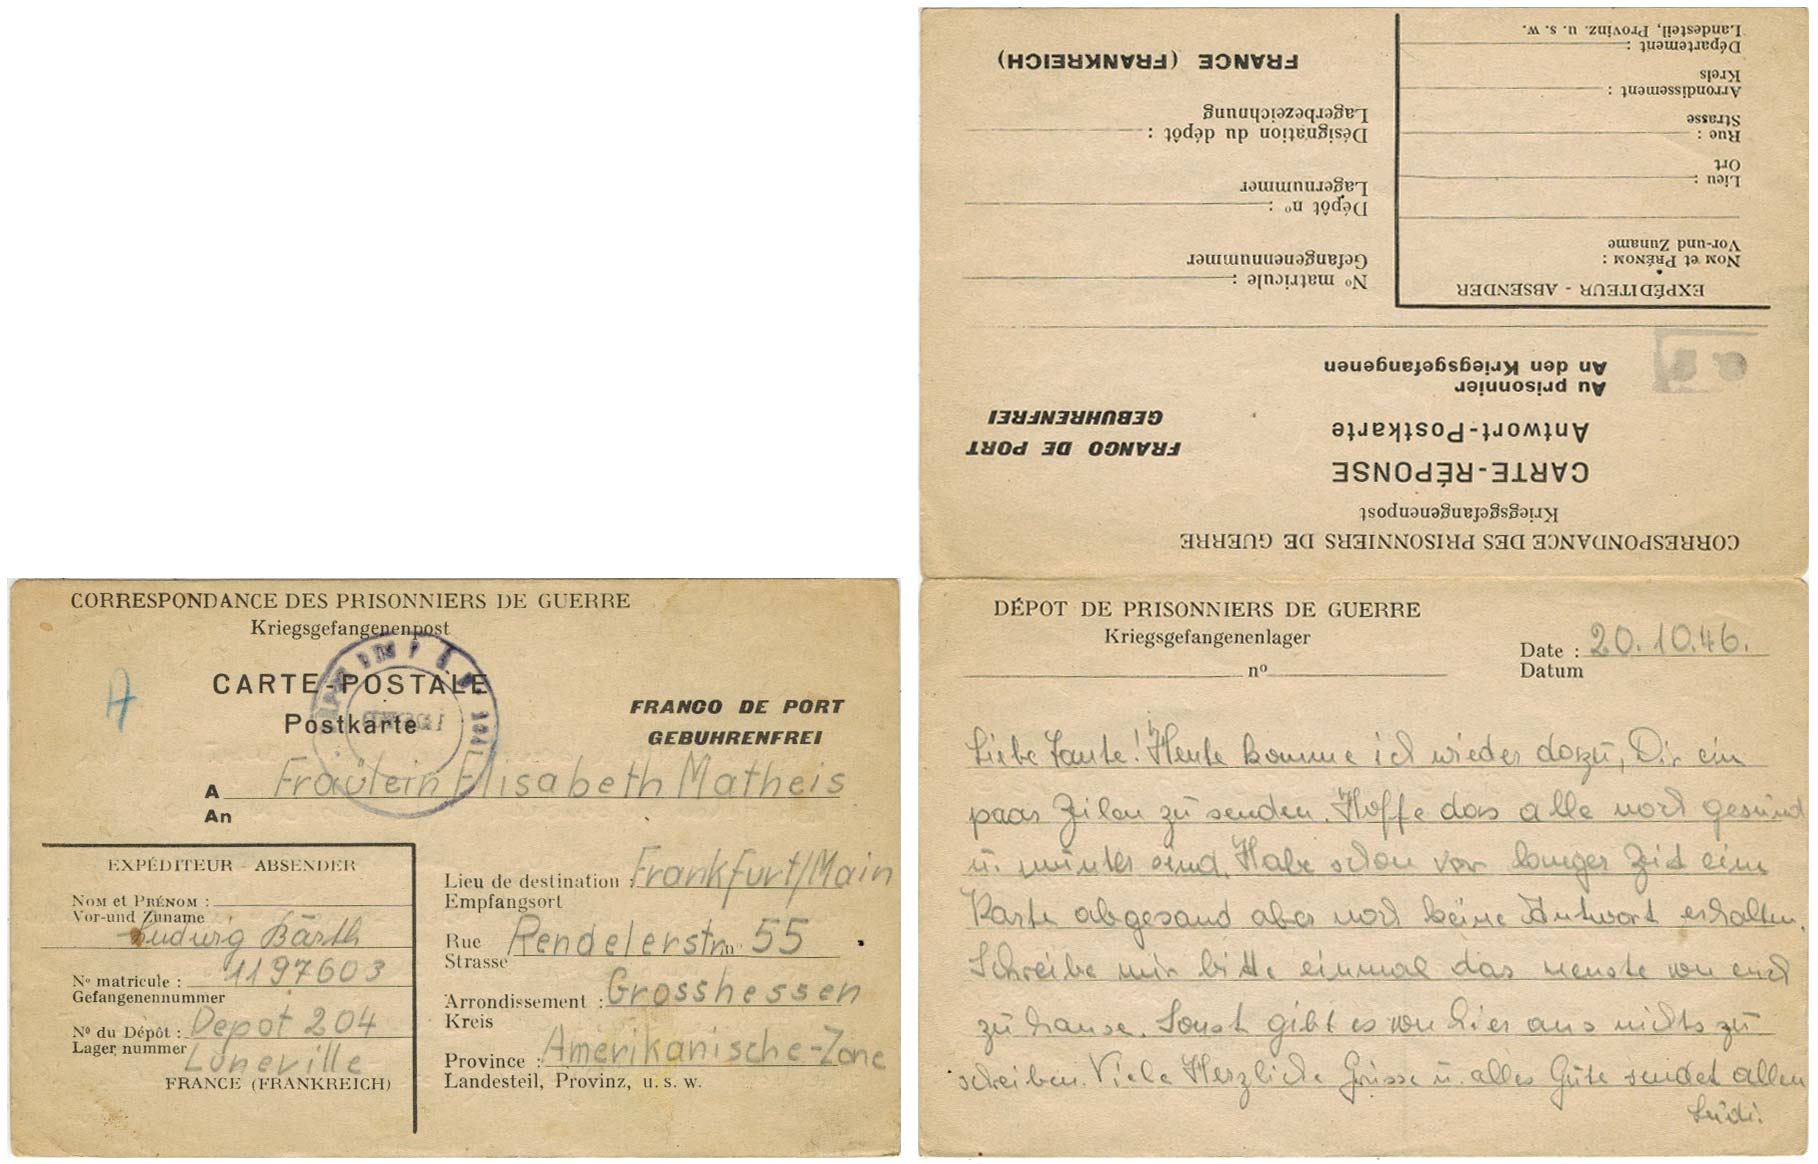 CORRESPONDANCE DES PRISONNIERS DE GUERRE
Kriegsgefangenenpost
A
CARTE-POSTALE
Postkarte
FRANCO DE PORT
GEBUHRENFREI
A Fräulein Elisabeth Matheis
An
EXPÉDITEUR - ABSENDER
NOM et PRÉNOM :
Vor-und Zuname
Ludwig Bärth
Nº matricule : 1197603
Gefangenennummer
Nº du Dépôt : Depot 204
Lager nummer Luneville
FRANCE (FRANKREICH)
Lieu de destination : Frankfurt/Main
Empfangsort
Rue Rendelerstr. nº 55
Strasse
Arrondissement : Grosshessen
Kreis
Province : Amerikanische-Zone
Landesteil, Provinz, u. s. w.
CORRESPONDANCE DES PRISONNIERS DE GUERRE
Kriegsgefangenenpost
CARTE-RÉPONSE
Antwort-Postkarte
FRANCO DE PORT
GEBUHRENFREI
Au prisonnier
An den Kriegsgefangenen
EXPÉDITEUR - ABSENDER
NOM et PRÉNOM :
Vor-und Zuname
Lieu :
Ort
Rue :
Strasse
Arrondissement :
Kreis
Département :
Landesteil, Provinz u. s. w.
Nº matricule :
Gefangenennummer
Dépôt nº :
Lagernummer
Désignation du dépôt :
Lagerbezeichnung
FRANCE (FRANKREICH)
DÉPOT DE PRISONNIERS DE GUERRE
Kriegsgefangenenlager
nº
Date : 20.10.46.
Datum
Liebe Tante! Heute komme ich wieder dazu, Dir ein
paar Zeilen zu senden. Hoffe das alle noch gesund
u. munter sind. Habe schon vor langer Zeit eine
Karte abgesand aber noch keine Antwort erhalten.
Schreibe mir bitte einmal das neuste von euch
zu hause. Sonst gibt es von hier aus nichts zu
schreiben. Viele Herzliche Grüsse u. alles Gute sendet allen
Ludi.